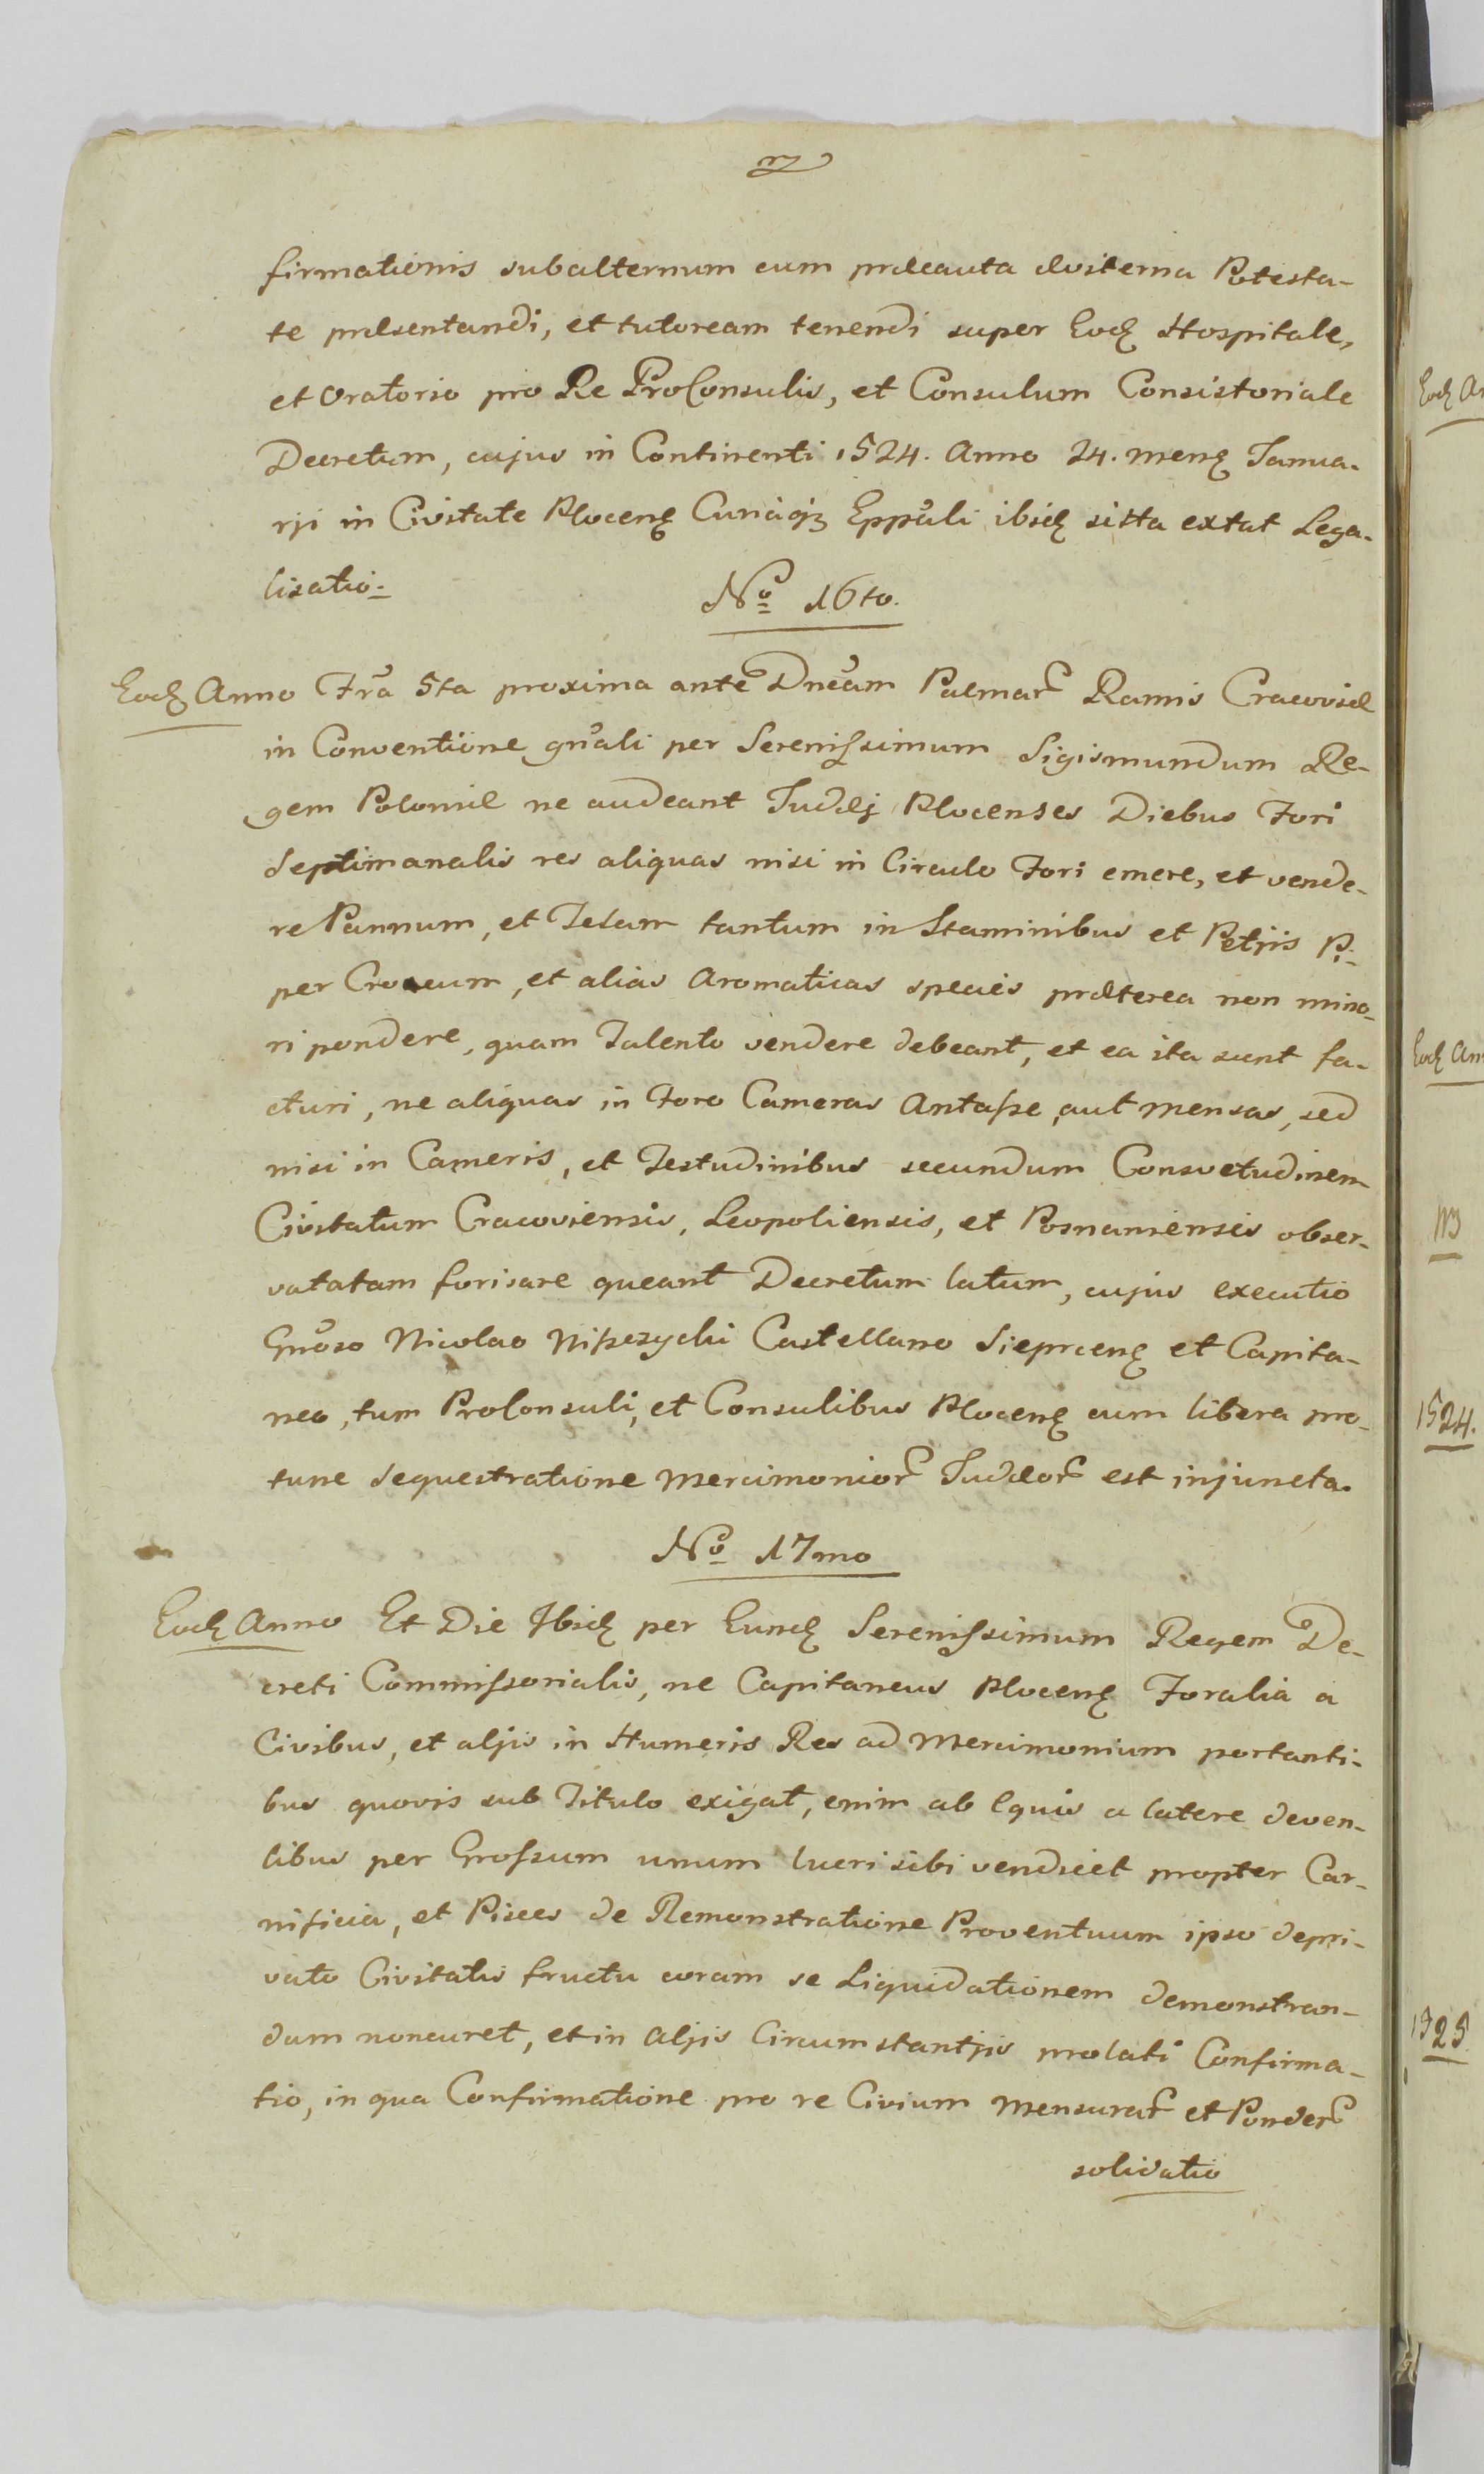 firmationis subalternum cum præcauta dvoterna Potesta-
te præsentandi, et tutoream tenendi super Eod Hospitale,
et Oratorio pro Re ProConsulis, et Consulum Consistoriale
Decretum, cujus in Continenti 1524. Anno 24. Mens Janua-
rji in Civitate Plocens Curiaq Eppali ibid sitta extat Lega-
lisatio.
No 16to.
Eod Anno Fra 5ta proxima ante Dncam Palmar Ramis Cracoviæ
in Conventione gnali per Serenissimum Sigismundum Re-
gem Poloniæ ne audeant Judæj Plocenses Diebus Fori
Septimanalis res aliquas nisi in Circulo Fori emere, et vende-
re Pannum, et Telam tantum in Staminibus et Petjis Pi-
per Croceum, et alias Aromaticas species præterea non mino-
ri pondere, quam Talento vendere debeant, et ea ita sunt fa-
cturi, ne aliquas in Foro Cameras Antasse, aut Mensas, sed
nisi in Cameris, et Testudinibus secundum Consvetudinem
Civitatum Cracoviensis, Leopoliensis, et Posnaniensis obser-
vatatam forisare queant Decretum latum, cujus executio
Gnoso Nicolao Niszczycki Castellano Sieprcens et Capita-
neo, tum ProConsuli, et Consulibus Plocens cum libera pro-
tunc Sequestratione Mercimonior Judæor est injuncta.
No 17mo
Eod Anno Et Die Ibid per Eund Serenissimum Regem De-
creti Commissorialis, ne Capitaneus Plocens Foralia a
Civibus, et aljis in Humeris Res ad Mercimonium portanti-
bus quovis sub Titulo exigat, enim ab Equis a latere deven-
libus per Grossum unum lucri sibi vendicet propter Car-
nificia, et Pisces de Remonstratione Proventuum ipso depri-
vato Civitatis fructu coram se Liquidationem demonstran-
dum noncuret, et in Aljis Circumstantjis prolati Confirma-
tio, in qua Confirmatione pro re Civium Mensurar et Ponder
solidatio
Eod An
Eod An
1524.
1525